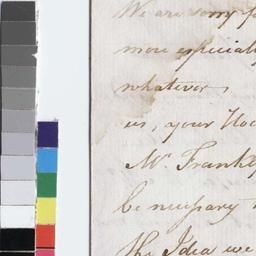 We are sorry
more especially
whatever,
us, your
Mr. Frankl
be necessary
the Idea we